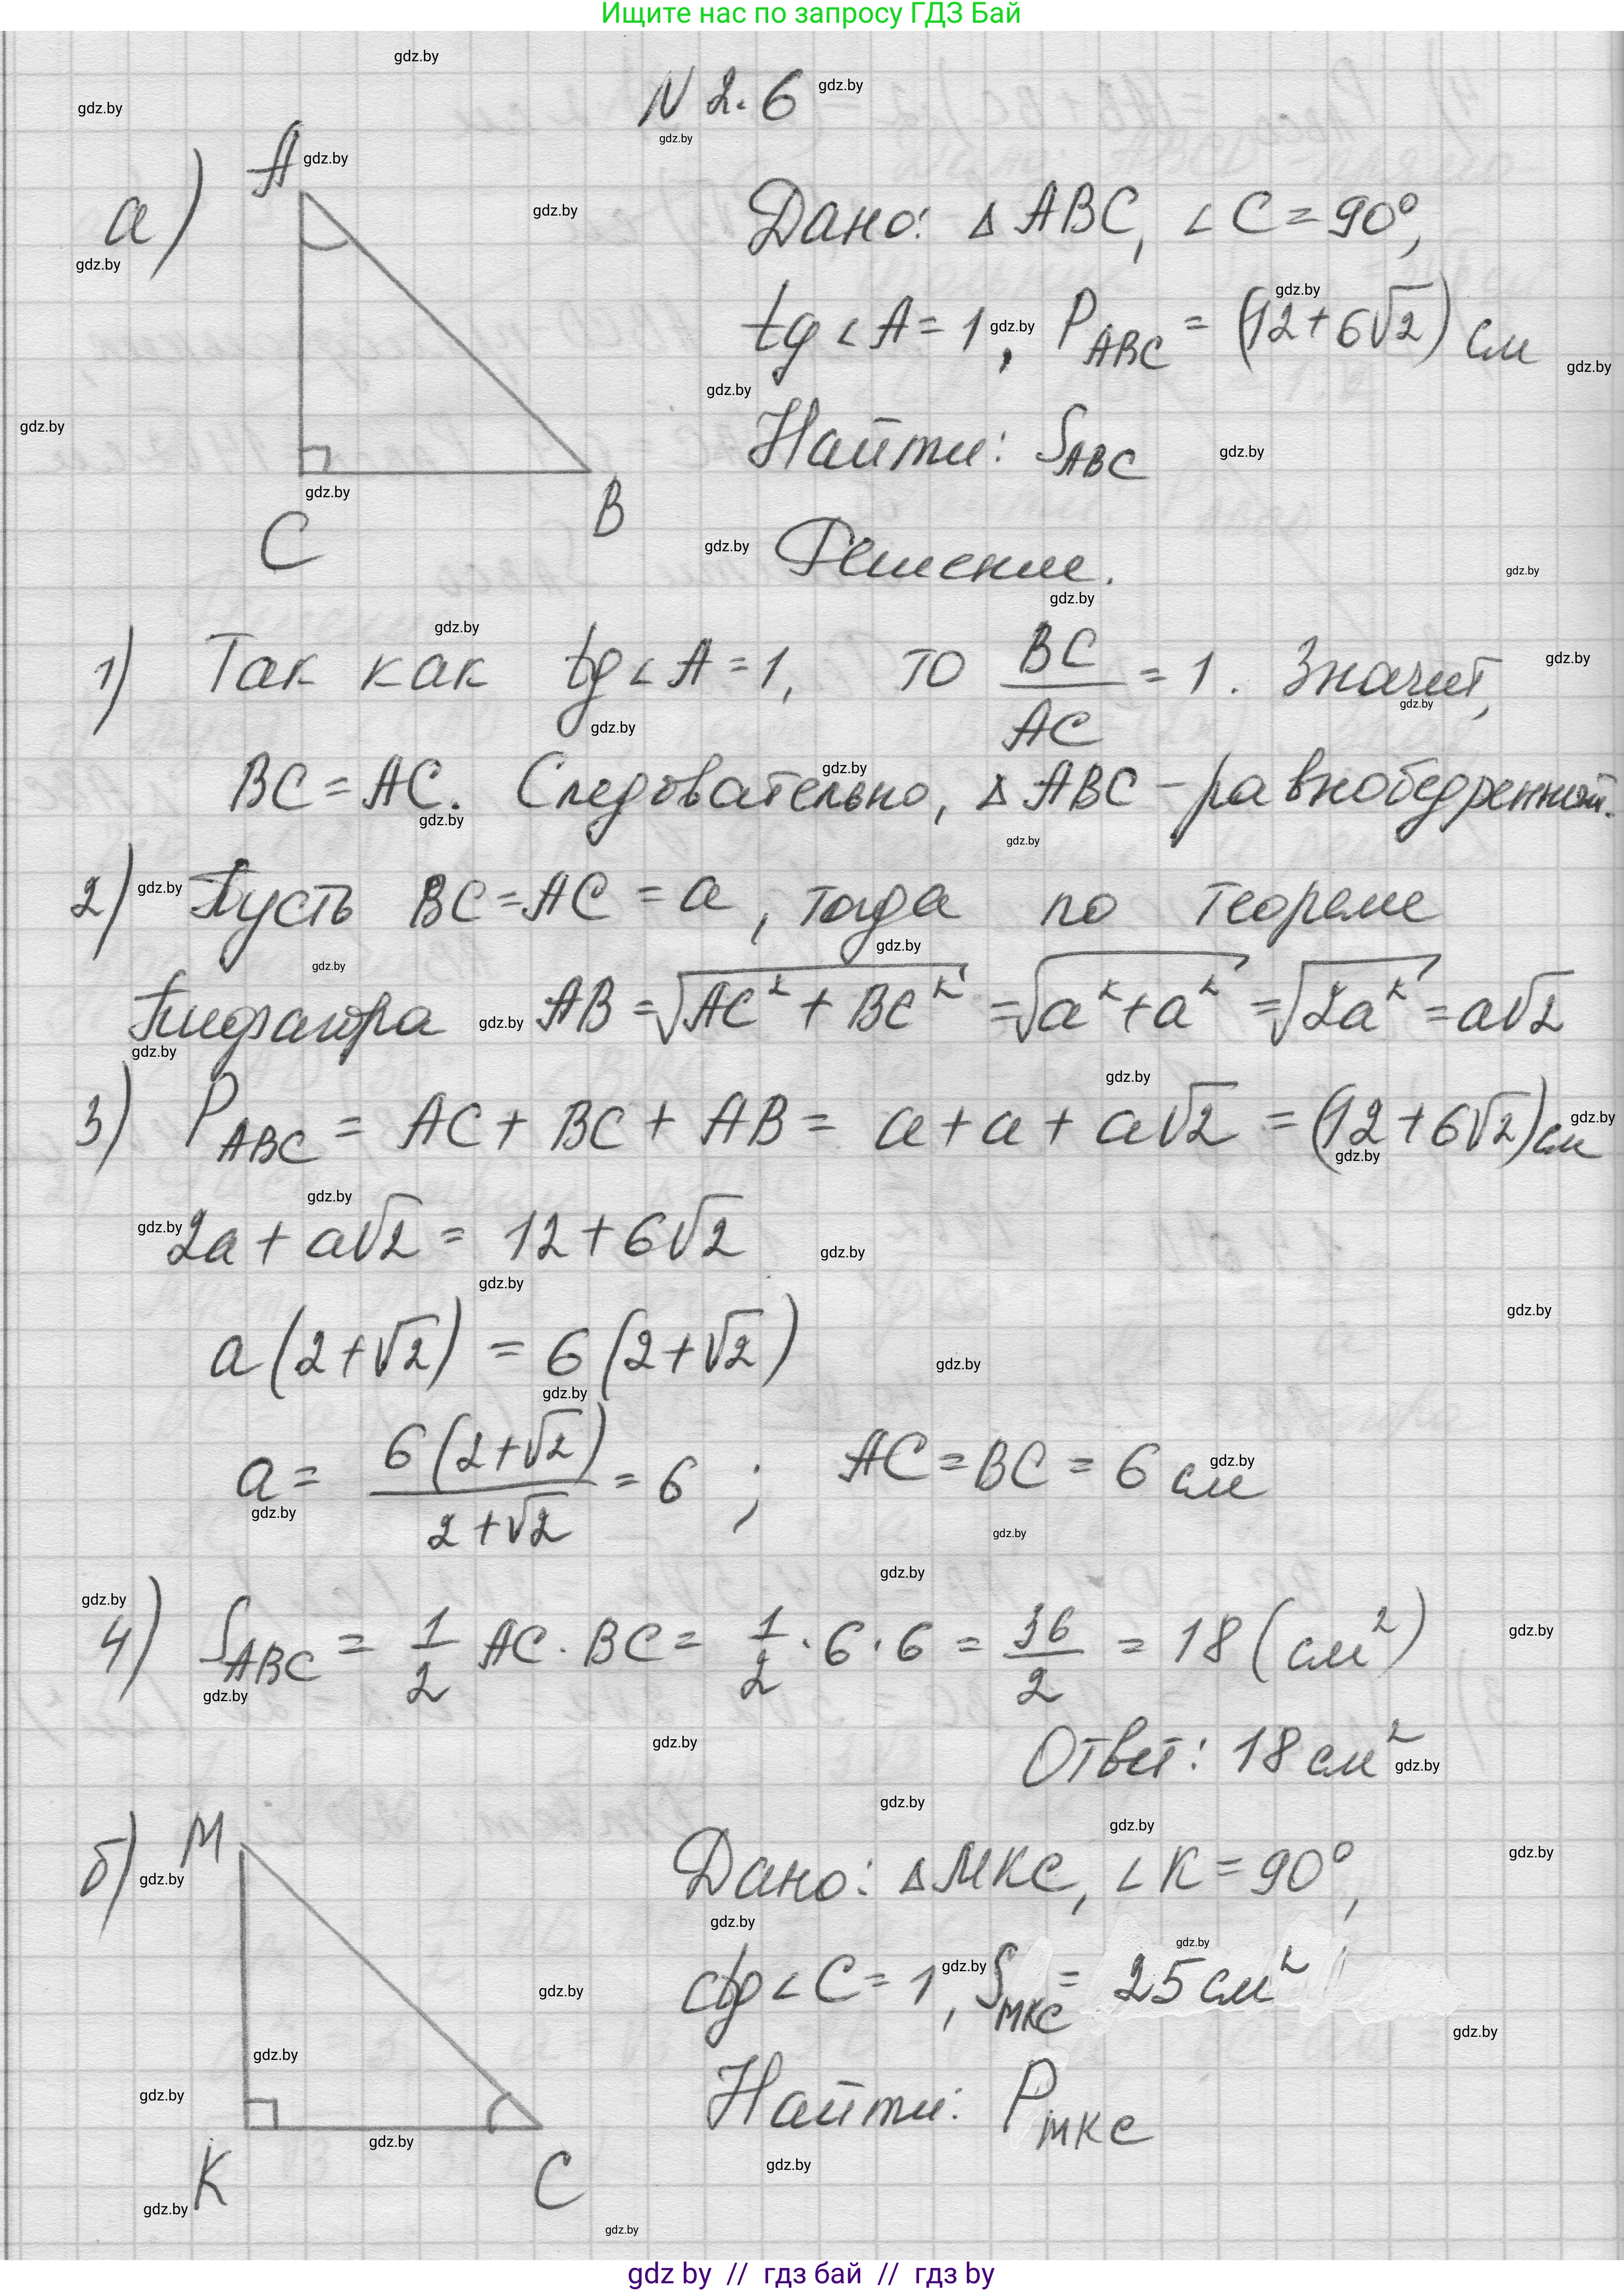 Ищите нас по запросу ГДЗ Бай
N 2.6
а)
A
C
B
Дано: △ ABC, ∠ C = 90°,
tg ∠ A = 1, P_ABC = (12+6√2) см
Найти: S_ABC
Решение.
1) Так как tg ∠ A = 1, то BC/AC = 1. Значит,
BC = AC. Следовательно, △ ABC – равнобедренный.
2) Пусть BC = AC = a, тогда по теореме
Пифагора AB = √(AC² + BC²) = √(a² + a²) = √(2a²) = a√2
3) P_ABC = AC + BC + AB = a + a + a√2 = (12+6√2) см
2a + a√2 = 12 + 6√2
a(2+√2) = 6(2+√2)
a = 6(2+√2)/(2+√2) = 6 ; AC = BC = 6 см
4) S_ABC = 1/2 AC · BC = 1/2 · 6 · 6 = 36/2 = 18 (см²)
Ответ: 18 см²
б)
M
K
C
Дано: △ MKC, ∠ K = 90°,
ctg ∠ C = 1, S_MKC = 25 см²
Найти: P_MKC
gdz by // гдз бай // гдз by